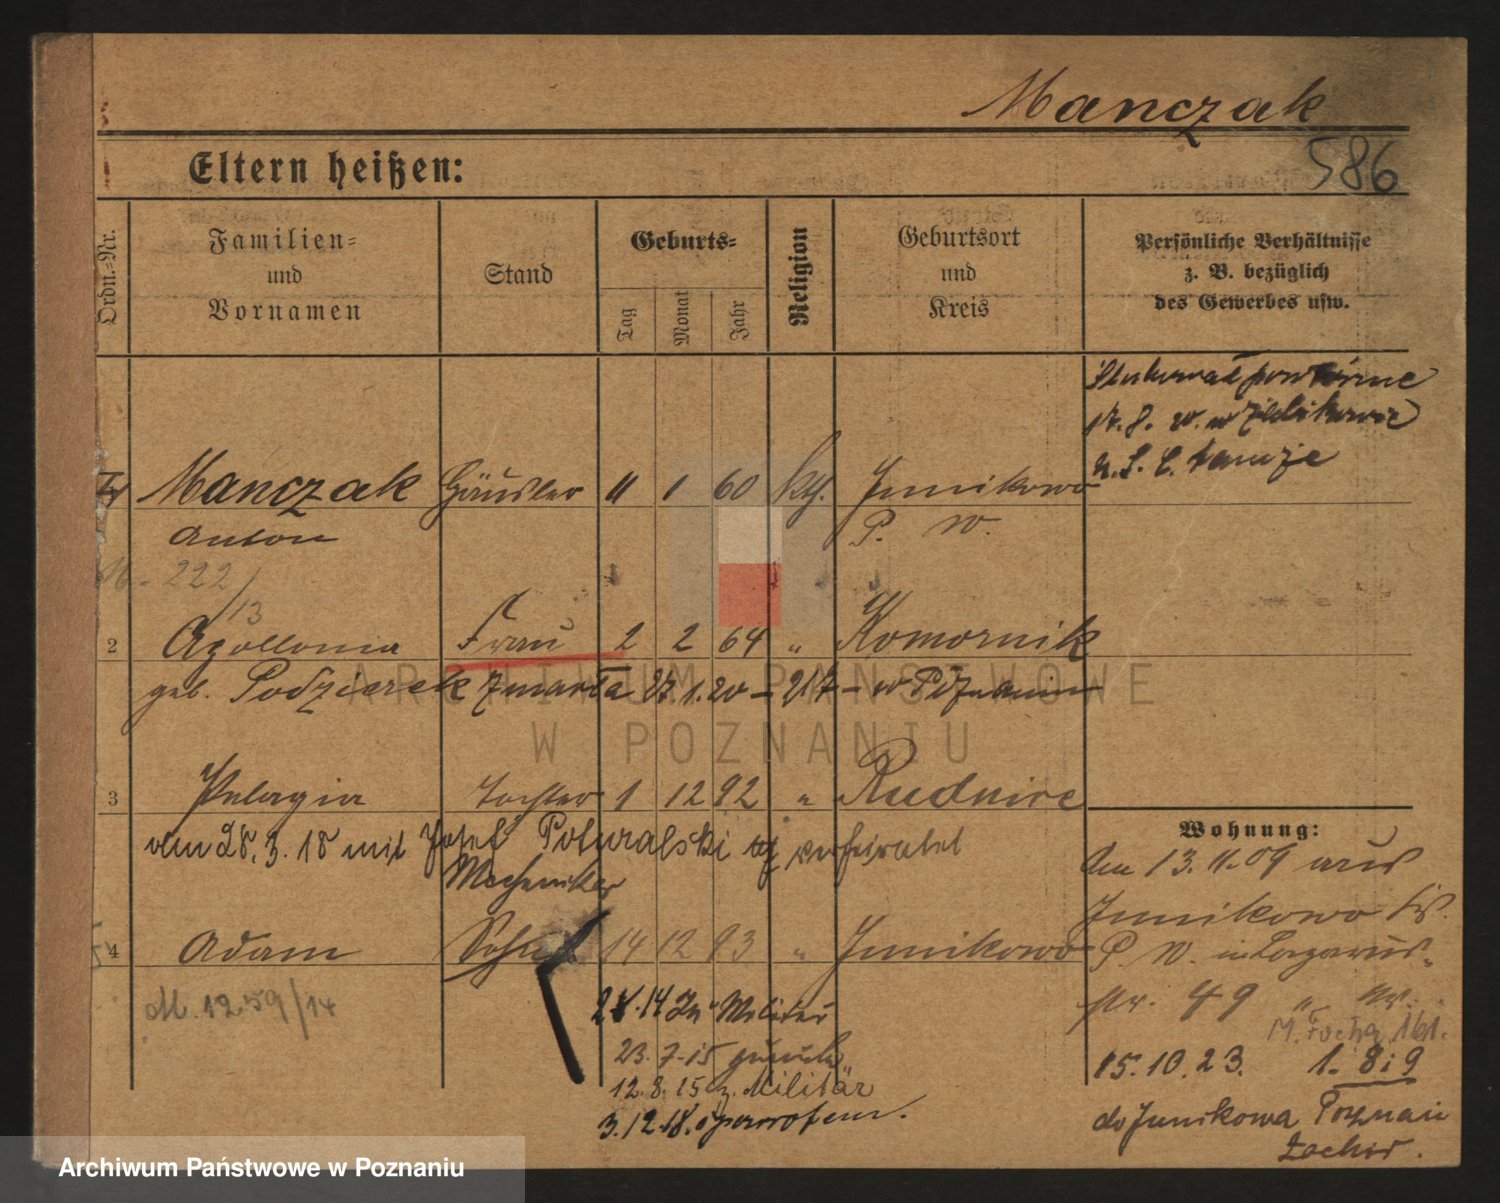 Manczak
586
Eltern heißen:
Ordn.-Nr.
Familien-
und
Vornamen
Stand
Geburts-
Tag
Monat
Jahr
Religion
Geburtsort
und
Kreis
Persönliche Verhältnisse
z. B. bezüglich
des Gewerbes usw.
Manczak Häusler 11 1 60 kth. Junikowo
Anton P. W.
222/13
2 Apollonia Frau 2 2 64 " Komornik
geb. Podzierek zmarła 27.1.20 – w Poznaniu
3 Pelagia Tochter 1 12 92 " Rudnice
vom 28.3.18 mit Josef Poturalski verheiratet
Mechaniker
4 Adam Sohn 14 12 93 " Junikowo
M. 1259/14
14 Zu Militär
23.7.15 zurück
12.8.15 z. Militär
3.12.18.
Wohnung:
Am 13.11.09 aus
Junikowo
P. W. in
str. 49
M. Focha 161.
15.10.23. 1. 8 i 9
do Junikowa Poznań
Zachod.
ARCHIWUM PAŃSTWOWE
W POZNANIU
Archiwum Państwowe w Poznaniu